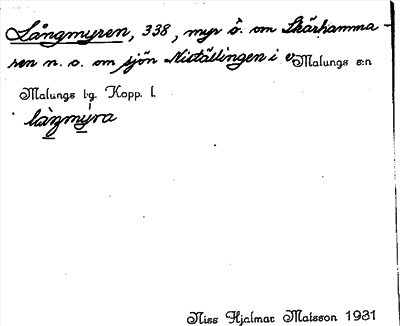 Långmyren, 338, myr ö. om Skärhamma-
ren n. o. om sjön Niställingen i v. Malungs s:n
Malungs tg. Kopp. l.
làŋmýra
Niss Hjalmar Matsson 1931